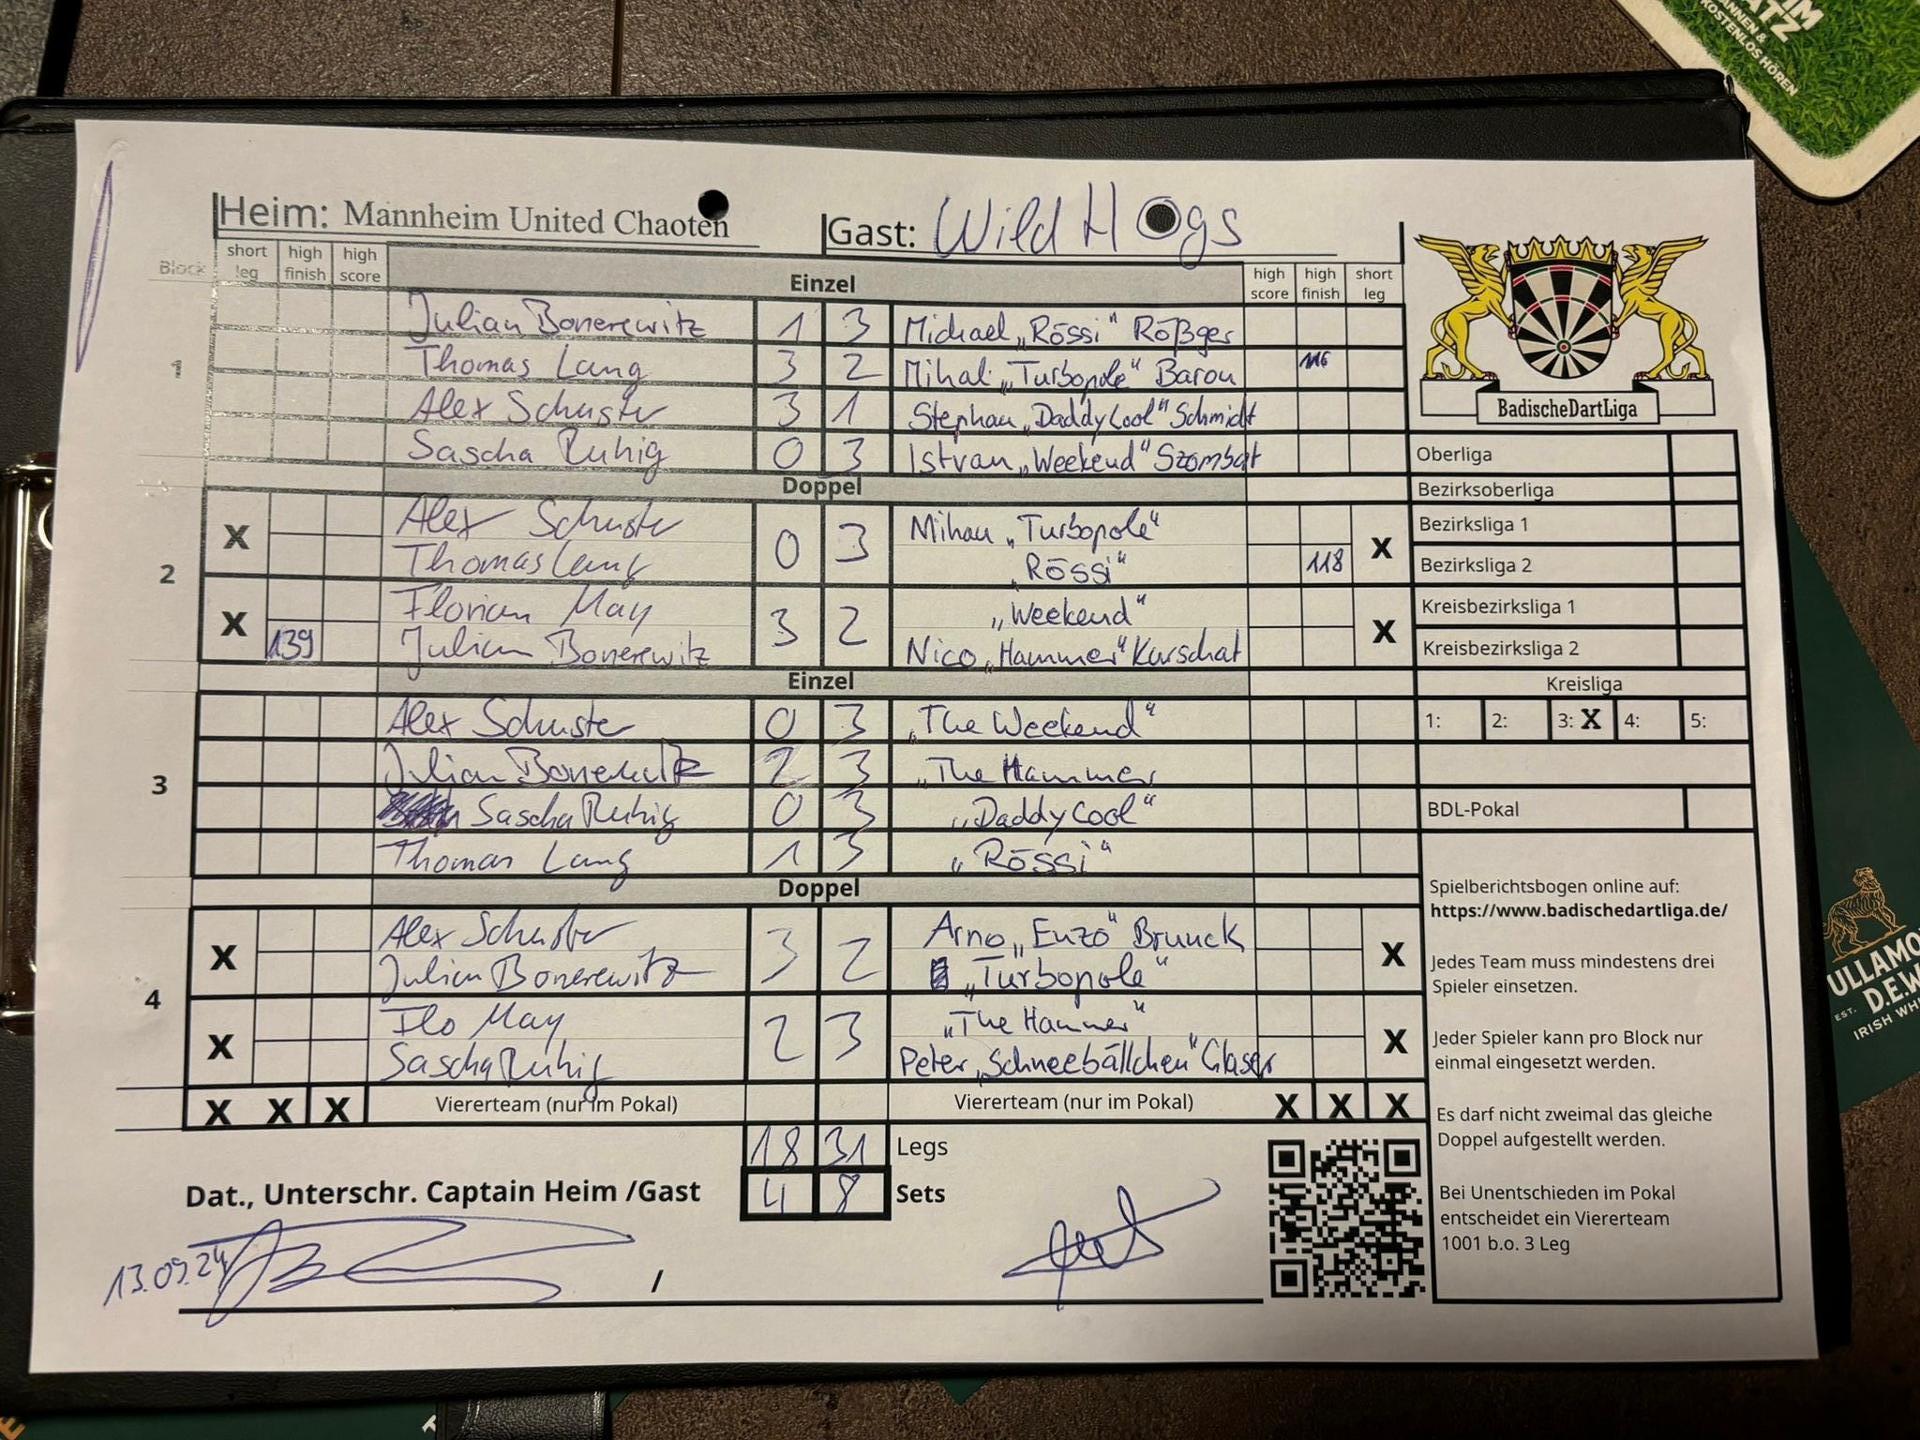 IM
ATZ
ANNEN &
KOSTENLOS HÖREN
Heim: Mannheim United Chaoten Gast: Wild Hogs
Block short leg high finish high score Einzel high score high finish short leg
1
Julian Bonerewitz 1 3 Michael „Rössi“ Rößger
Thomas Lang 3 2 Mihai „Turbopole“ Barou 116
Alex Schuster 3 1 Stephan „DaddyCool“ Schmidt
Sascha Ruhig 0 3 Istvan „Weekend“ Szombat
Doppel
2
X Alex Schuster 0 3 Mihau „Turbopole“ X
Thomas Lang „Rössi“ 118
X Florian May 3 2 „Weekend“ X
139 Julian Bonerewitz Nico „Hammer“ Kurschat
Einzel
3
Alex Schuster 0 3 „The Weekend“
Julian Bonerewitz 2 3 „The Hammer
Sascha Ruhig 0 3 „DaddyCool“
Thomas Lang 1 3 „Rössi“
Doppel
4
X Alex Schuster 3 2 Arno „Enzo“ Bruuck X
Julian Bonerewitz „Turbopole“
X Flo May 2 3 „The Hammer“ X
Sascha Ruhig Peter „Schneebällchen“ Glaser
X X X Viererteam (nur im Pokal) Viererteam (nur im Pokal) X X X
18 31 Legs
4 8 Sets
Dat., Unterschr. Captain Heim /Gast
13.09.24 /
BadischeDartLiga
Oberliga
Bezirksoberliga
Bezirksliga 1
Bezirksliga 2
Kreisbezirksliga 1
Kreisbezirksliga 2
Kreisliga
1: 2: 3: X 4: 5:
BDL-Pokal
Spielberichtsbogen online auf:
https://www.badischedartliga.de/
Jedes Team muss mindestens drei
Spieler einsetzen.
Jeder Spieler kann pro Block nur
einmal eingesetzt werden.
Es darf nicht zweimal das gleiche
Doppel aufgestellt werden.
Bei Unentschieden im Pokal
entscheidet ein Viererteam
1001 b.o. 3 Leg
ULLAMO
D.E.W
EST.
IRISH WH